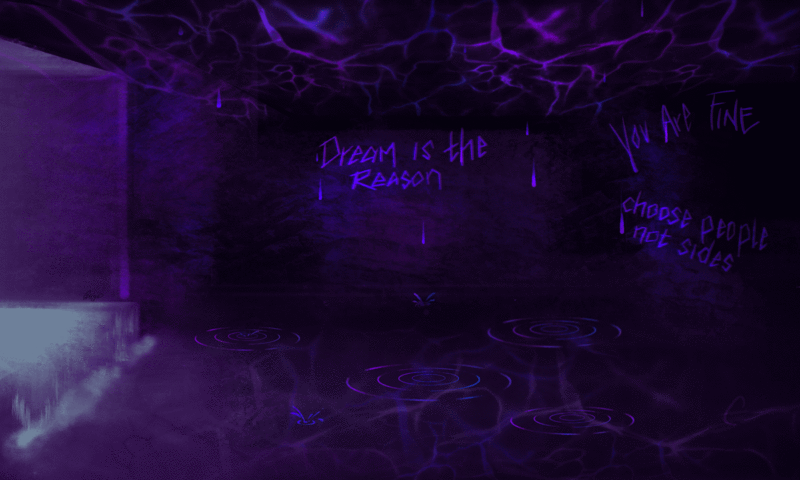 Dream is the
Reason
You Are FINE
choose people
not sides